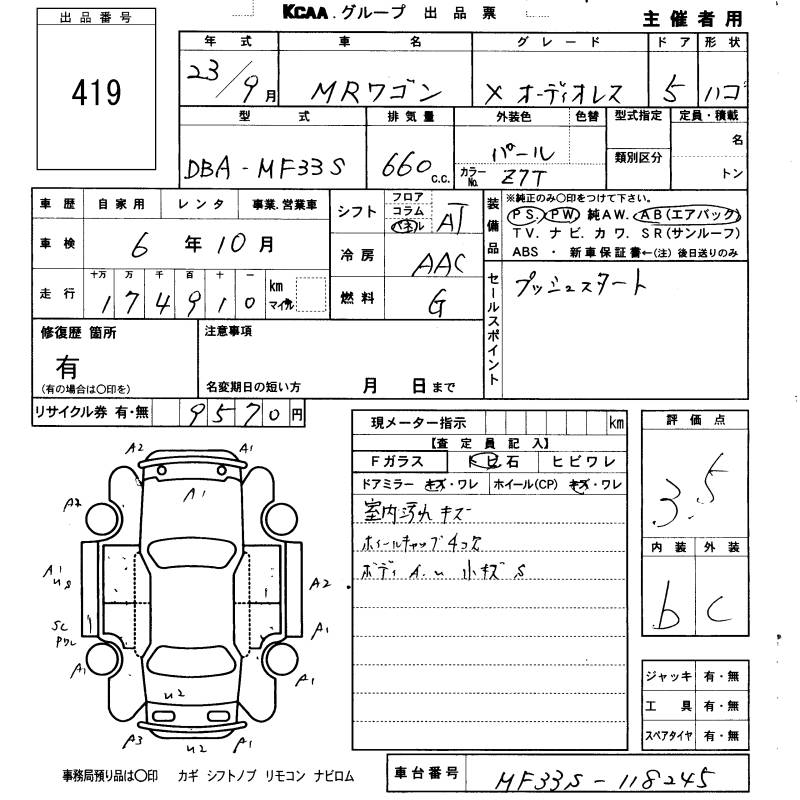 KCAA.グループ 出品票
主催者用
出品番号
419
年式 車名 グレード ドア 形状
23/9月 MRワゴン X オーディオレス 5 ハコ
型式 排気量 外装色 色替 型式指定 定員・積載
DBA-MF33S 660 C.C. パール 名
カラーNo. Z7T 類別区分 トン
車歴 自家用 レンタ 事業.営業車
車検 6年10月
走行 十万 万 千 百 十 一 km マイル
174910
シフト フロア コラム パネル AT
冷房 AAC
燃料 G
装備品
※純正のみ〇印をつけて下さい。
PS. PW. 純AW. AB(エアバック)
TV. ナビ. カワ. SR(サンルーフ)
ABS・新車保証書←(注)後日送りのみ
セールスポイント
プッシュスタート
修復歴 箇所
有
(有の場合は〇印を)
注意事項
名変期日の短い方 月 日まで
リサイクル券 有・無 9570円
現メーター指示 km
【査定員記入】
Fガラス トビ石 ヒビワレ
ドアミラー キズ・ワレ ホイール(CP) キズ・ワレ
室内汚れ キズ
ホイールキャップ4コ欠
ボディ A.u 小キズ S
評価点
3.5
内装 外装
b C
ジャッキ 有・無
工具 有・無
スペアタイヤ 有・無
A2 A1
A1
A2
A1
US
A2
SC
A1
A1 A1
U2
A3 U2 A1
事務局預り品は〇印 カギ シフトノブ リモコン ナビロム
車台番号 MF33S-118245